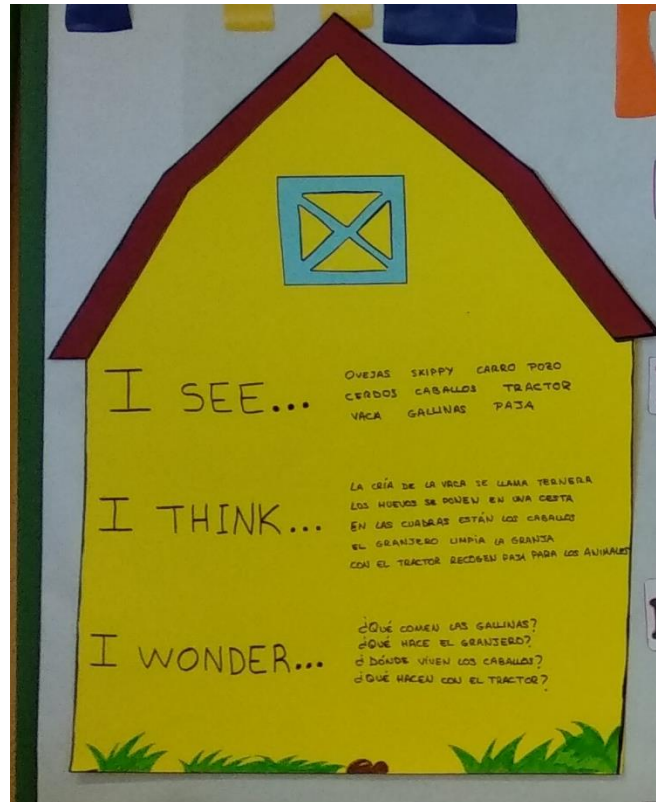 I SEE...
OVEJAS SKIPPY CARRO POZO
CERDOS CABALLOS TRACTOR
VACA GALLINAS PAJA
I THINK...
LA CRÍA DE LA VACA SE LLAMA TERNERA
LOS HUEVOS SE PONEN EN UNA CESTA
EN LAS CUADRAS ESTÁN LOS CABALLOS
EL GRANJERO LIMPIA LA GRANJA
CON EL TRACTOR RECOGEN PAJA PARA LOS ANIMALES
I WONDER...
¿QUÉ COMEN LAS GALLINAS?
¿QUÉ HACE EL GRANJERO?
¿DÓNDE VIVEN LOS CABALLOS?
¿QUÉ HACEN CON EL TRACTOR?